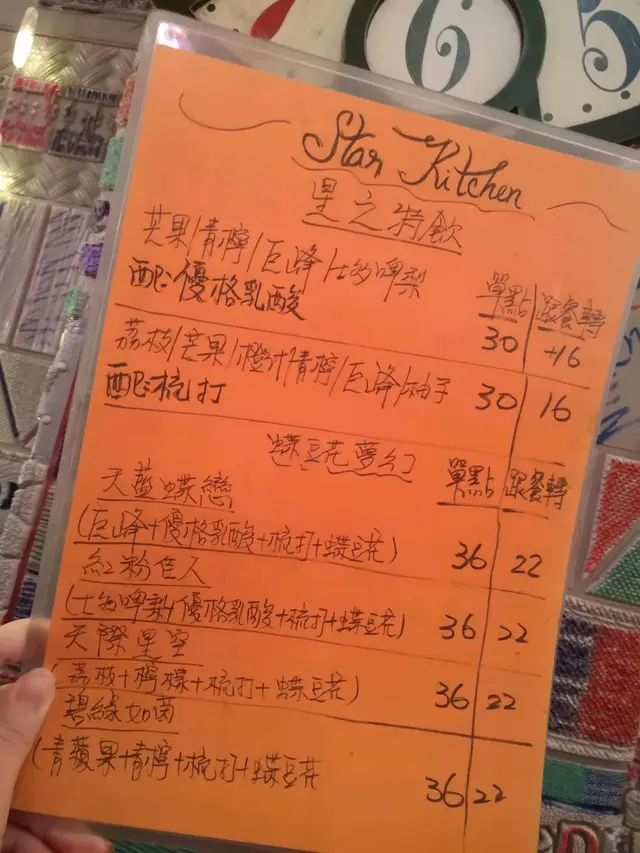 Star Kitchen
星之特飲
芒果/青檸/巨峰/士多啤梨
配:優格乳酸
單點 跟餐轉
30 +16
荔枝/芒果/橙汁/青檸/巨峰/柚子
配:梳打
30 16
蝶豆花夢幻
單點 跟餐轉
天藍蝶戀
(巨峰+優格乳酸+梳打+蝶豆花) 36 22
紅粉佳人
(士多啤梨+優格乳酸+梳打+蝶豆花) 36 22
天際星空
(荔枝+檸檬+梳打+蝶豆花) 36 22
碧綠如茵
(青蘋果+青檸+梳打+蝶豆花 36 22
6
5